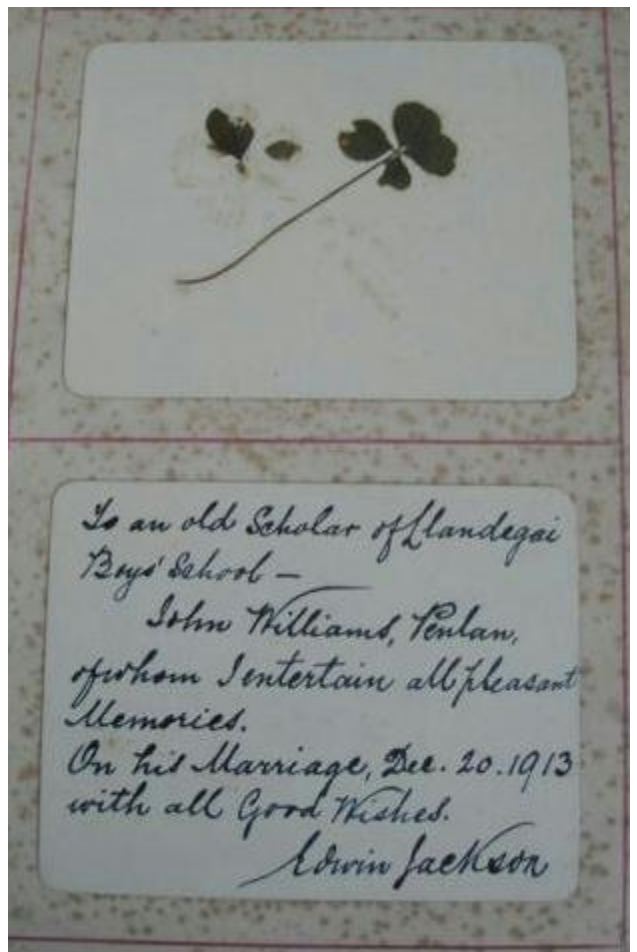 To an old Scholar of Llandegai
Boys' School —
John Williams, Penlan,
of whom I entertain all pleasant
Memories.
On his Marriage, Dec. 20. 1913
with all Good Wishes.
Edwin Jackson